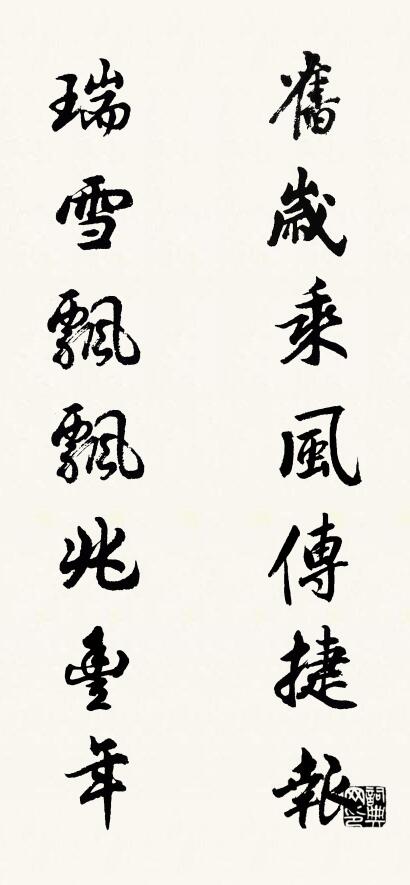 舊歲乘風傳捷報
瑞雪飄飄兆豐年